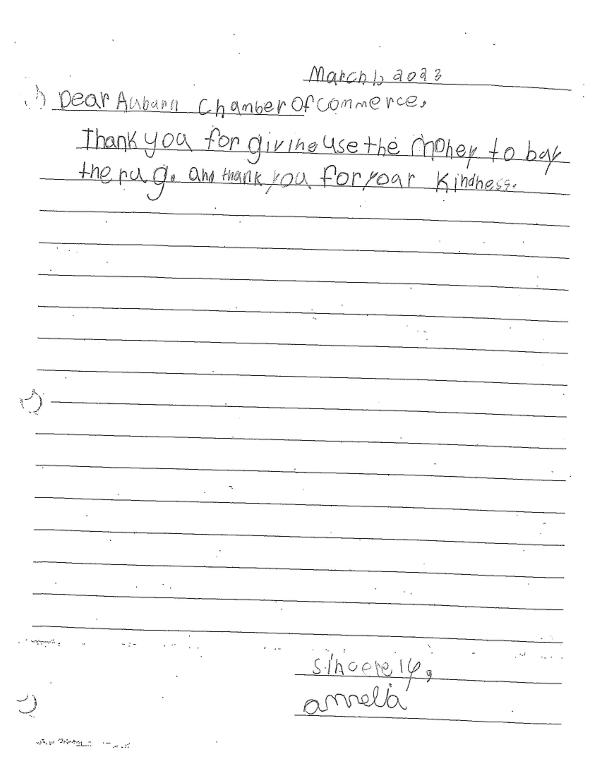 March 1, 2023
Dear Auburn Chamber of Commerce,
Thank you for giving use the money to buy
the rug. and thank you for your kindness.
sincerely,
amelia